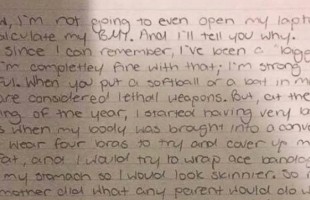 w, I'm not going to even open my lapt
alculate my BMI. And I'll tell you why.
since I can remember, I've been a "bigge
I'm completley fine with that; I'm strong
ful. When you put a softball or a bat in m
are considered lethal weapons. But, at the
ing of the year, I started having very b
s when my body was brought into a conve
wear four bras to try and cover up m
fat, and I would try to wrap ace bandag
my stomach so I would look skinnier. So
mother did what any parent would do w